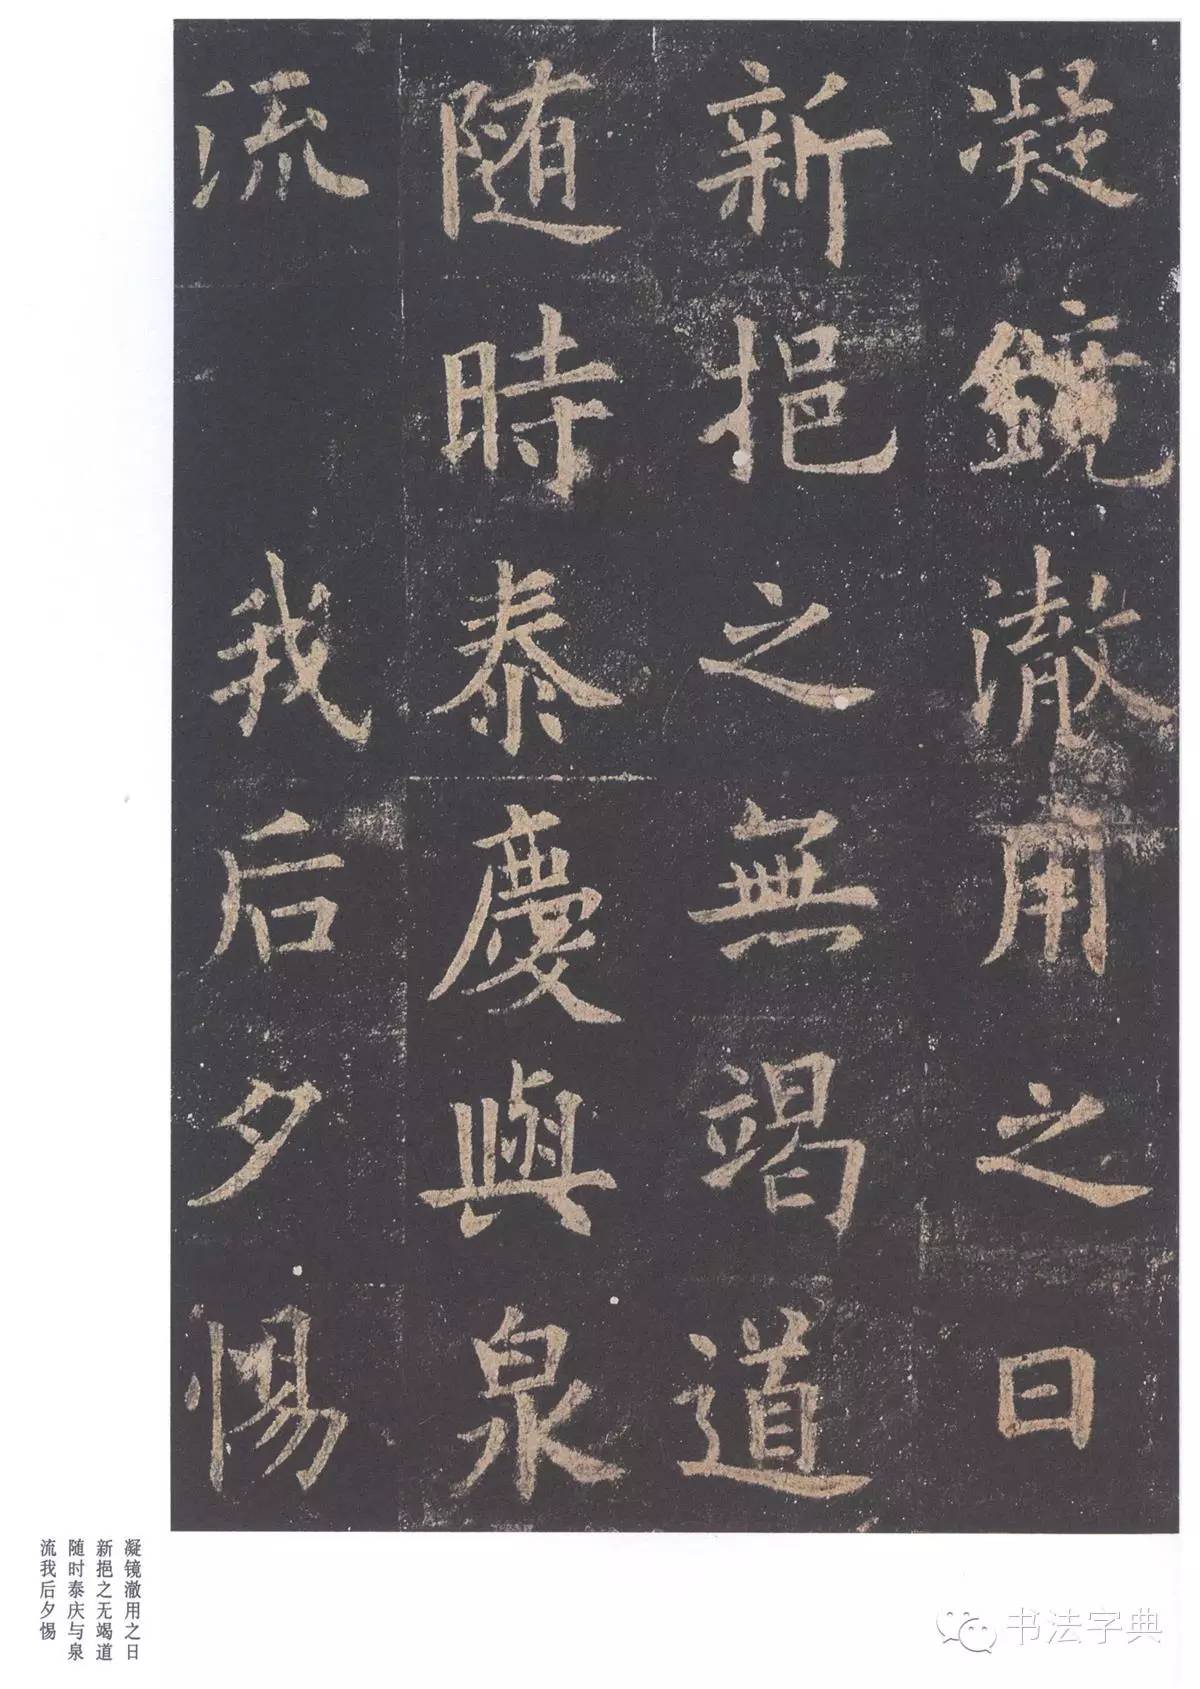 凝鏡澈用之日
新挹之無竭道
随時泰慶與泉
流我后夕惕
凝镜澈用之日
新挹之无竭道
随时泰庆与泉
流我后夕惕
书法字典